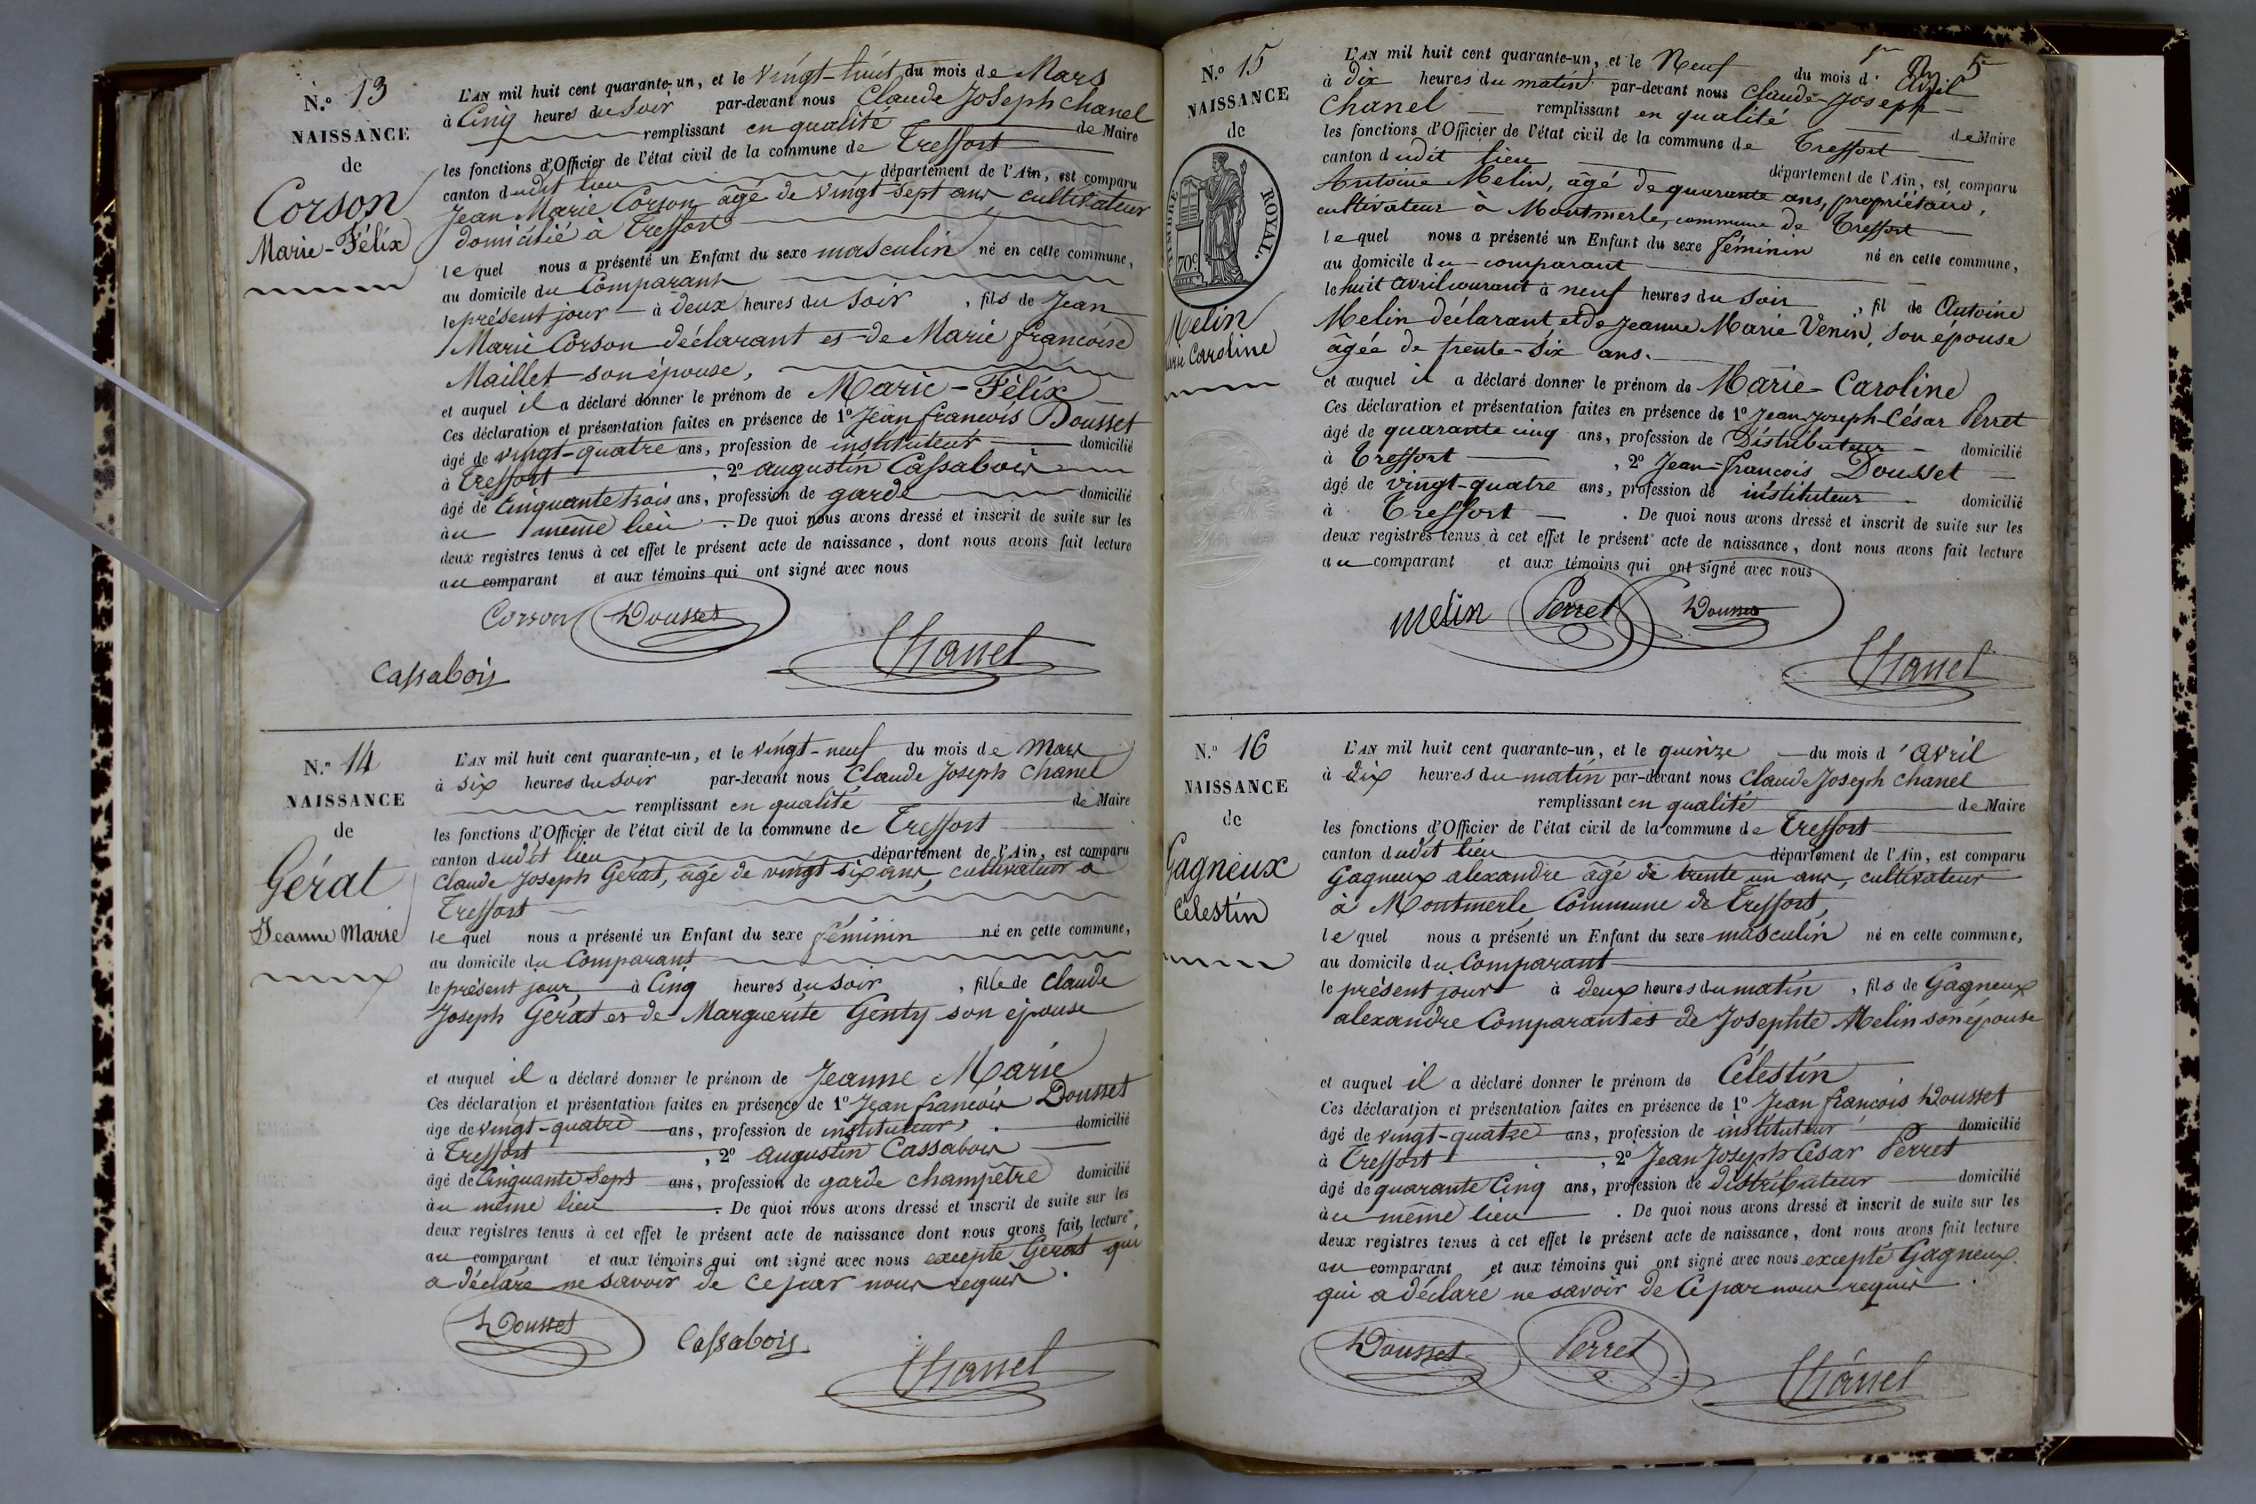 N.° 13
NAISSANCE
de
Corson
Marie-Félix
L'AN mil huit cent quarante-un, et le vingt-huit du mois de Mars
à Cinq heures du Soir par-devant nous Claude Joseph Chanel
remplissant en qualité de Maire
les fonctions d'Officier de l'état civil de la commune de Treffort
canton dudit lieu département de l'Ain, est comparu
Jean Marie Corson âgé de vingt-sept ans cultivateur
domicilié à Treffort
lequel nous a présenté un Enfant du sexe masculin né en cette commune,
au domicile du Comparant
le présent jour à deux heures du Soir, fils de Jean
Marie Corson déclarant et de Marie françoise
Maillet son épouse,
et auquel il a déclaré donner le prénom de Marie-Félix
Ces déclaration et présentation faites en présence de 1° Jean françois Dousset
âgé de vingt-quatre ans, profession de instituteur domicilié
à Treffort, 2° augustin Cassabois
âgé de Cinquante trois ans, profession de garde domicilié
au même lieu. De quoi nous avons dressé et inscrit de suite sur les
deux registres tenus à cet effet le présent acte de naissance, dont nous avons fait lecture
au comparant et aux témoins qui ont signé avec nous
Corson Dousset
Chanel
Cassabois
N.° 14
NAISSANCE
de
Gérat
Jeanne Marie
L'AN mil huit cent quarante-un, et le vingt-neuf du mois de Mars
à six heures du soir par-devant nous Claude Joseph Chanel
remplissant en qualité de Maire
les fonctions d'Officier de l'état civil de la commune de Treffort
canton dudit lieu département de l'Ain, est comparu
Claude Joseph Gérat, âgé de vingt six ans, cultivateur à
Treffort
lequel nous a présenté un Enfant du sexe féminin né en cette commune,
au domicile du Comparant
le présent jour, à Cinq heures du soir, fille de Claude
Joseph Gérat et de Marguerite Genty son épouse
et auquel il a déclaré donner le prénom de Jeanne Marie
Ces déclaration et présentation faites en présence de 1° Jean françois Dousset
âgé de vingt-quatre ans, profession de instituteur, domicilié
à Treffort, 2° augustin Cassabois
âgé de Cinquante Sept ans, profession de garde champêtre domicilié
au même lieu. De quoi nous avons dressé et inscrit de suite sur les
deux registres tenus à cet effet le présent acte de naissance dont nous avons fait lecture,
au comparant et aux témoins qui ont signé avec nous excepté Gerat qui
a déclaré ne savoir de ce par nous requis.
Dousset Cassabois
Chanel
5
N.° 15
NAISSANCE
de
TIMBRE ROYAL.
70c
Melin
Marie Caroline
L'AN mil huit cent quarante-un, et le Neuf du mois d' Avril
à dix heures du matin par-devant nous Claude-Joseph
Chanel remplissant en qualité de Maire
les fonctions d'Officier de l'état civil de la commune de Treffort
canton dudit lieu département de l'Ain, est comparu
Antoine Melin, âgé de quarante ans, propriétaire,
cultivateur à Montmerle, commune de Treffort
lequel nous a présenté un Enfant du sexe féminin né en cette commune,
au domicile du comparant
le huit avril courant à neuf heures du Soir, fil de Antoine
Melin déclarant et de Jeanne Marie Venin, son épouse
âgée de trente-six ans.
et auquel il a déclaré donner le prénom de Marie-Caroline
Ces déclaration et présentation faites en présence de 1° Jean Joseph-César Perret
âgé de quarante cinq ans, profession de Distributeur domicilié
à Treffort, 2° Jean-françois Dousset
âgé de vingt-quatre ans, profession de instituteur domicilié
à Treffort. De quoi nous avons dressé et inscrit de suite sur les
deux registres tenus à cet effet le présent acte de naissance, dont nous avons fait lecture
au comparant et aux témoins qui ont signé avec nous
melin Perret Dousset
Chanel
N.° 16
NAISSANCE
de
Gagneux
Célestin
L'AN mil huit cent quarante-un, et le quinze du mois d'avril
à dix heures du matin par-devant nous Claude Joseph Chanel
remplissant en qualité de Maire
les fonctions d'Officier de l'état civil de la commune de Treffort
canton dudit lieu département de l'Ain, est comparu
Gagneux alexandre âgé de trente un ans, cultivateur
à Montmerle Commune de Treffort,
lequel nous a présenté un Enfant du sexe masculin né en cette commune,
au domicile du Comparant
le présent jour à deux heures du matin, fils de Gagneux
alexandre Comparant et de Josephte Melin son épouse
et auquel il a déclaré donner le prénom de Célestin
Ces déclaration et présentation faites en présence de 1° Jean françois Dousset
âgé de vingt-quatre ans, profession de instituteur domicilié
à Treffort, 2° Jean Joseph César Perret
âgé de quarante Cinq ans, profession de distributeur domicilié
au même lieu. De quoi nous avons dressé et inscrit de suite sur les
deux registres tenus à cet effet le présent acte de naissance, dont nous avons fait lecture
au comparant et aux témoins qui ont signé avec nous excepté Gagneux
qui a déclaré ne savoir de Ce par nous requis.
Dousset Perret
Chanel